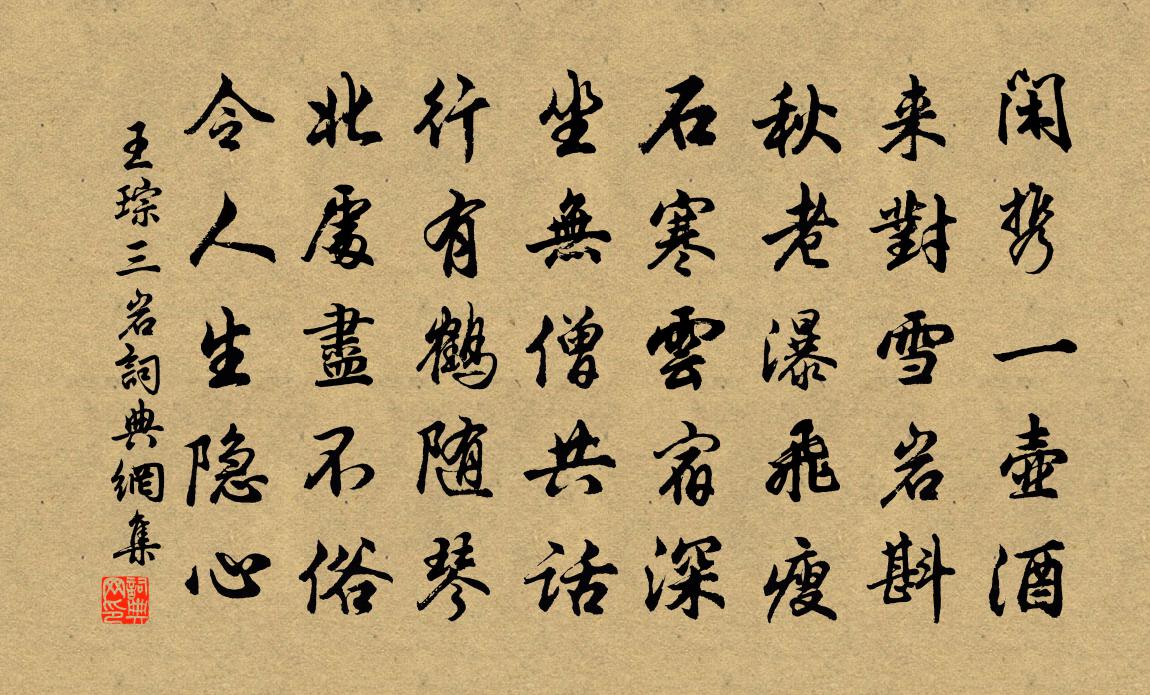 闲携一壶酒
来對雪岩斟
秋老瀑飛瘦
石寒雲宿深
坐無僧共話
行有鶴随琴
北處盡不俗
令人生隐心
王琮三岩詞典網集
詞典网印